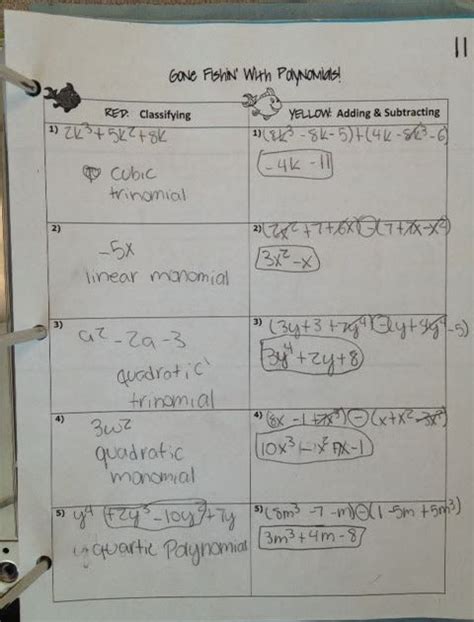 11
Gone Fishin' With Polynomials!
RED: Classifying
YELLOW: Adding & Subtracting
1) 2k³+5k²+8k
cubic
trinomial
1) (8k³ -8k-5)+(4k-8k³-6)
-4k -11
2)
-5x
linear monomial
2) (2x²+7+6x)-(7+7x-x²)
3x²-x
3)
a²-2a-3
quadratic
trinomial
3)
3y⁴+2y+8
4)
3w²
quadratic
monomial
4) (8x -1+7x³)-(x+x²-3x³)
10x³-x²+7x-1
5) y⁴ +2y³-10y²+7y
quartic Polynomial
5) (8m³ -7 -m)-(1-5m+5m³)
3m³+4m-8